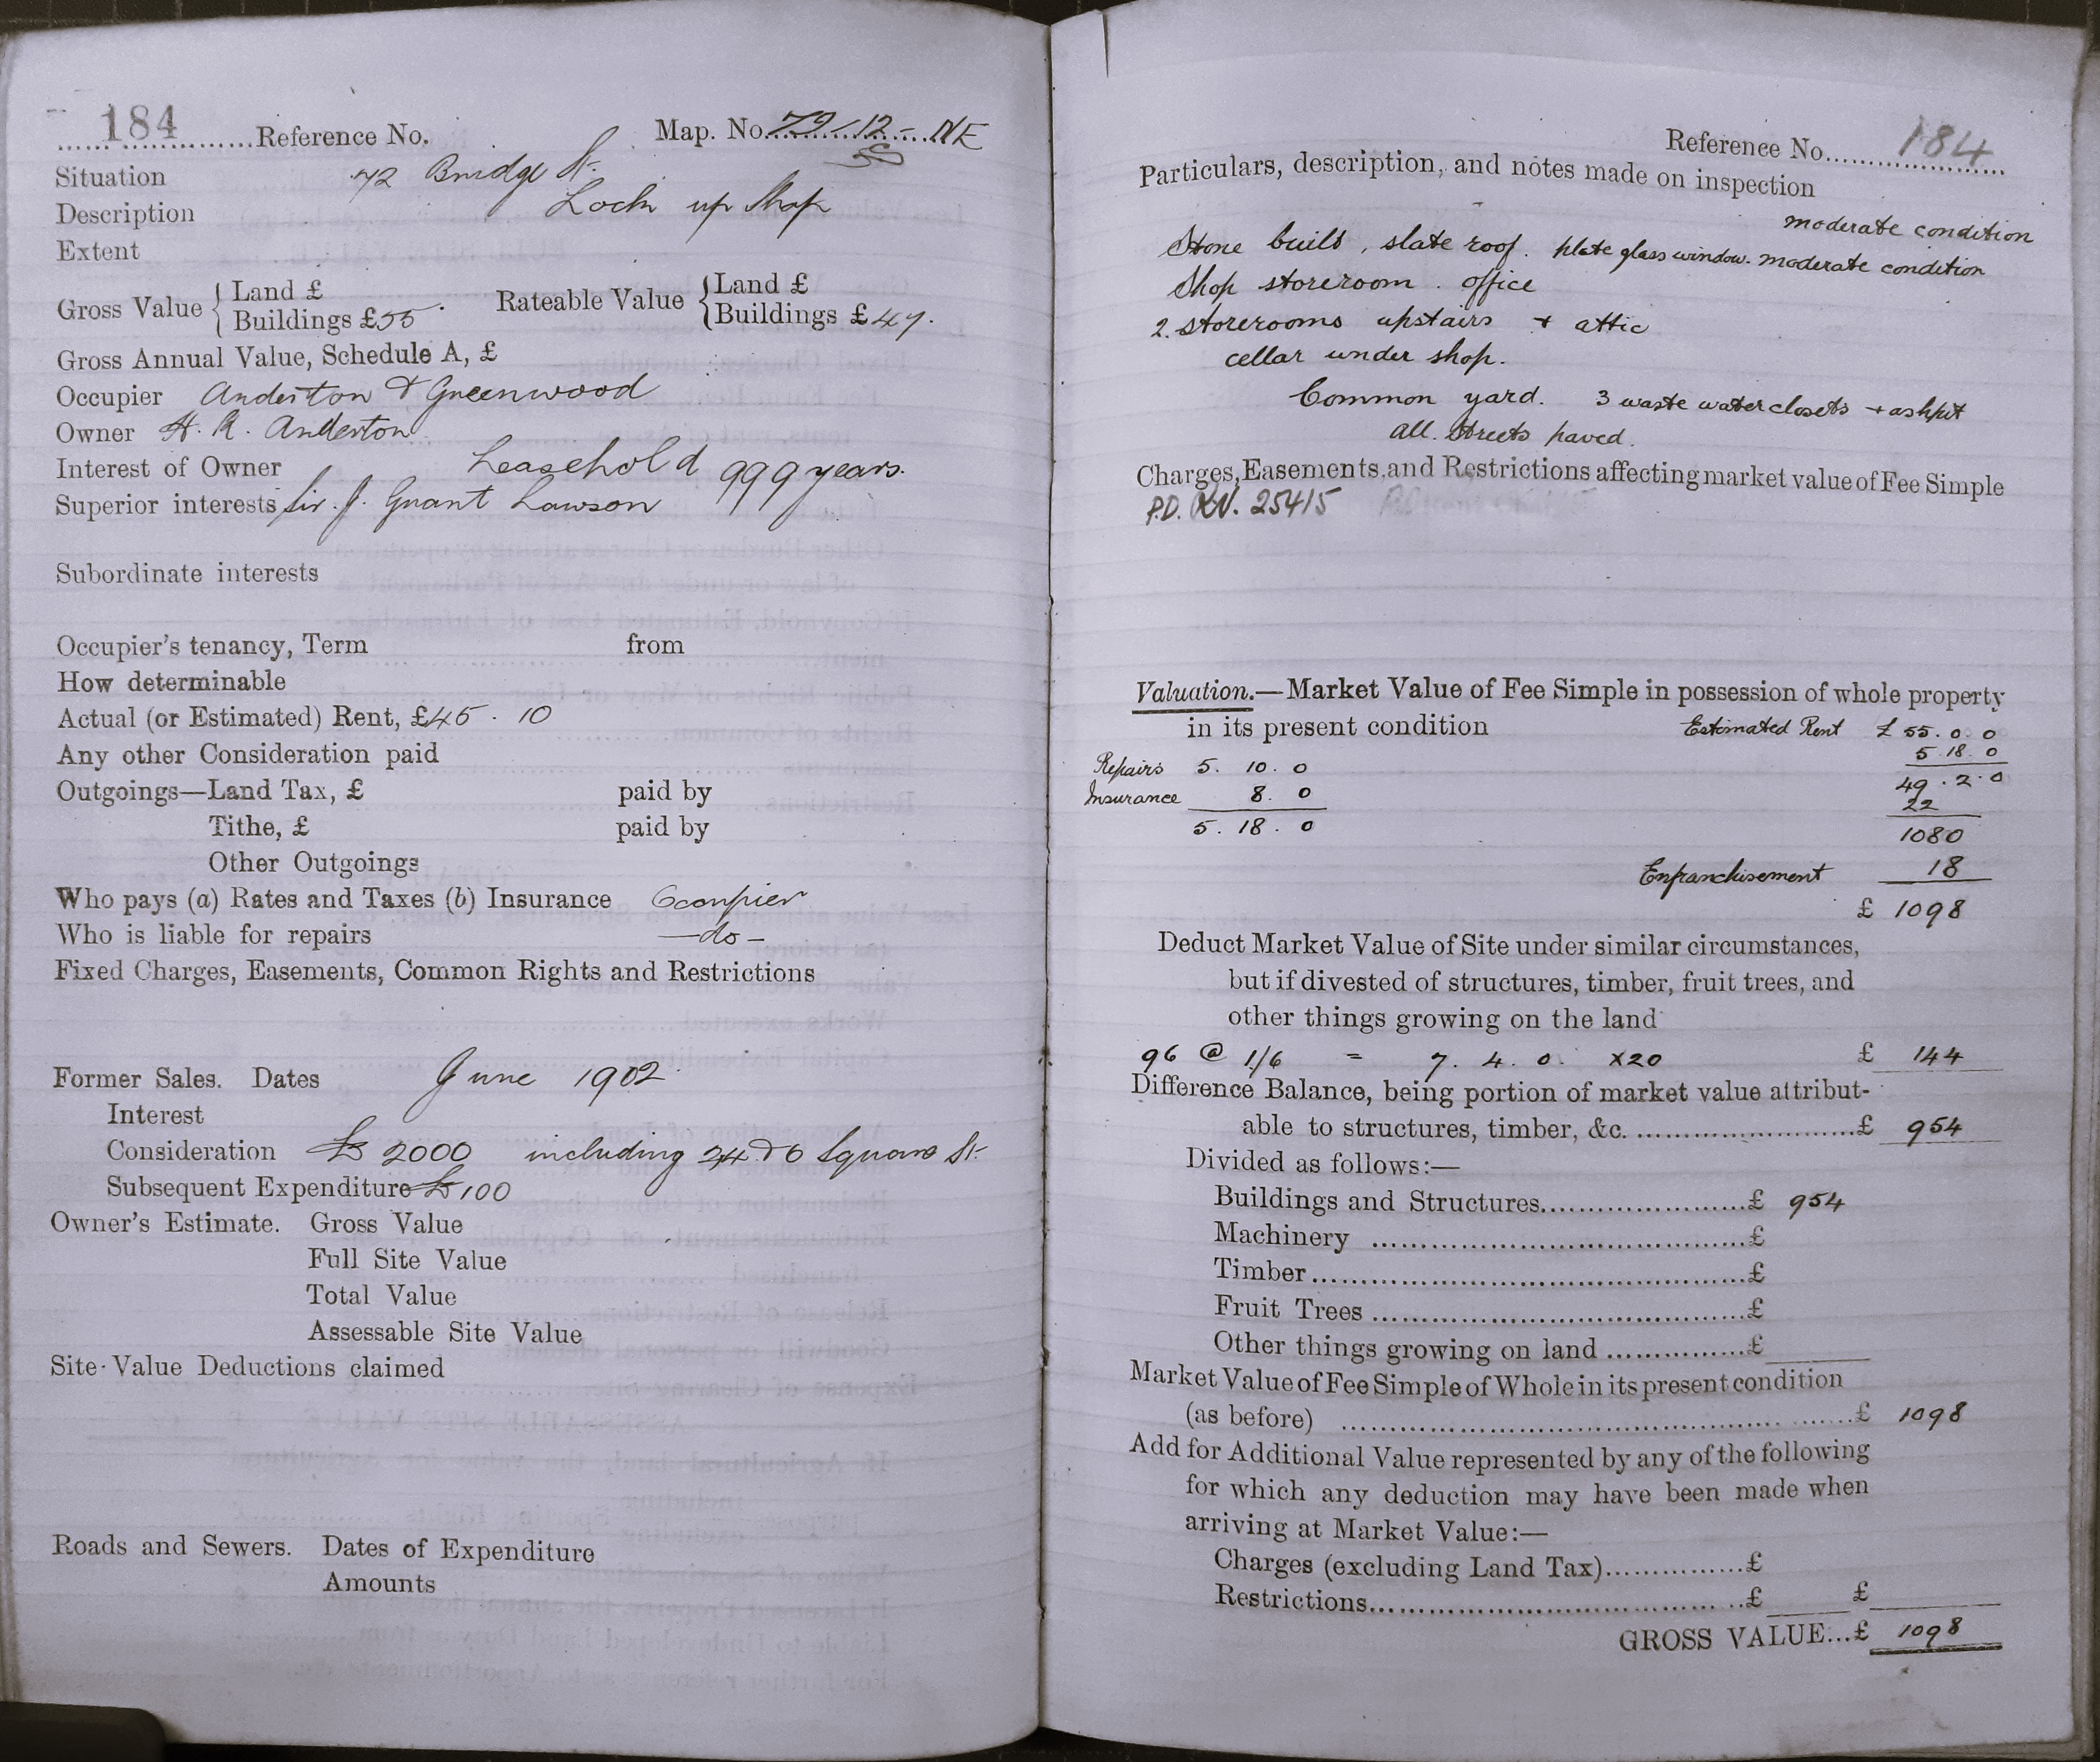 184 Reference No. Map. No. 79-12-NE
Situation 72 Bridge St.
Description Lock up Shop
Extent
Gross Value { Land £ Rateable Value { Land £
Buildings £55 Buildings £47.
Gross Annual Value, Schedule A, £
Occupier Anderton & Greenwood
Owner H. R. Anderton
Interest of Owner Leasehold 999 years.
Superior interests Sir. J. Grant Lawson
Subordinate interests
Occupier's tenancy, Term from
How determinable
Actual (or Estimated) Rent, £45 . 10
Any other Consideration paid
Outgoings—Land Tax, £ paid by
Tithe, £ paid by
Other Outgoings
Who pays (a) Rates and Taxes (b) Insurance Occupier
Who is liable for repairs —do—
Fixed Charges, Easements, Common Rights and Restrictions
Former Sales. Dates June 1902
Interest
Consideration £ 2000 including 24 & 6 Square St.
Subsequent Expenditure £100
Owner's Estimate. Gross Value
Full Site Value
Total Value
Assessable Site Value
Site Value Deductions claimed
Roads and Sewers. Dates of Expenditure
Amounts
Reference No. 184
Particulars, description, and notes made on inspection
moderate condition
Stone built, slate roof. plate glass window. moderate condition
Shop storeroom . office
2. storerooms upstairs + attic
cellar under shop.
Common yard. 3 waste water closets + ashpit
all. Streets paved.
Charges, Easements, and Restrictions affecting market value of Fee Simple
P.D. 25415
Valuation.—Market Value of Fee Simple in possession of whole property
in its present condition Estimated Rent £ 55. 0. 0
5 18. 0
Repairs 5. 10. 0 49. 2. 0
Insurance 8. 0 22
5. 18. 0 1080
Enfranchisement 18
£ 1098
Deduct Market Value of Site under similar circumstances,
but if divested of structures, timber, fruit trees, and
other things growing on the land
96 @ 1/6 = 7. 4. 0. x20 £ 144
Difference Balance, being portion of market value attribut-
able to structures, timber, &c. £ 954
Divided as follows:—
Buildings and Structures £ 954
Machinery £
Timber £
Fruit Trees £
Other things growing on land £
Market Value of Fee Simple of Whole in its present condition
(as before) £ 1098
Add for Additional Value represented by any of the following
for which any deduction may have been made when
arriving at Market Value:—
Charges (excluding Land Tax) £
Restrictions £ £
GROSS VALUE...£ 1098